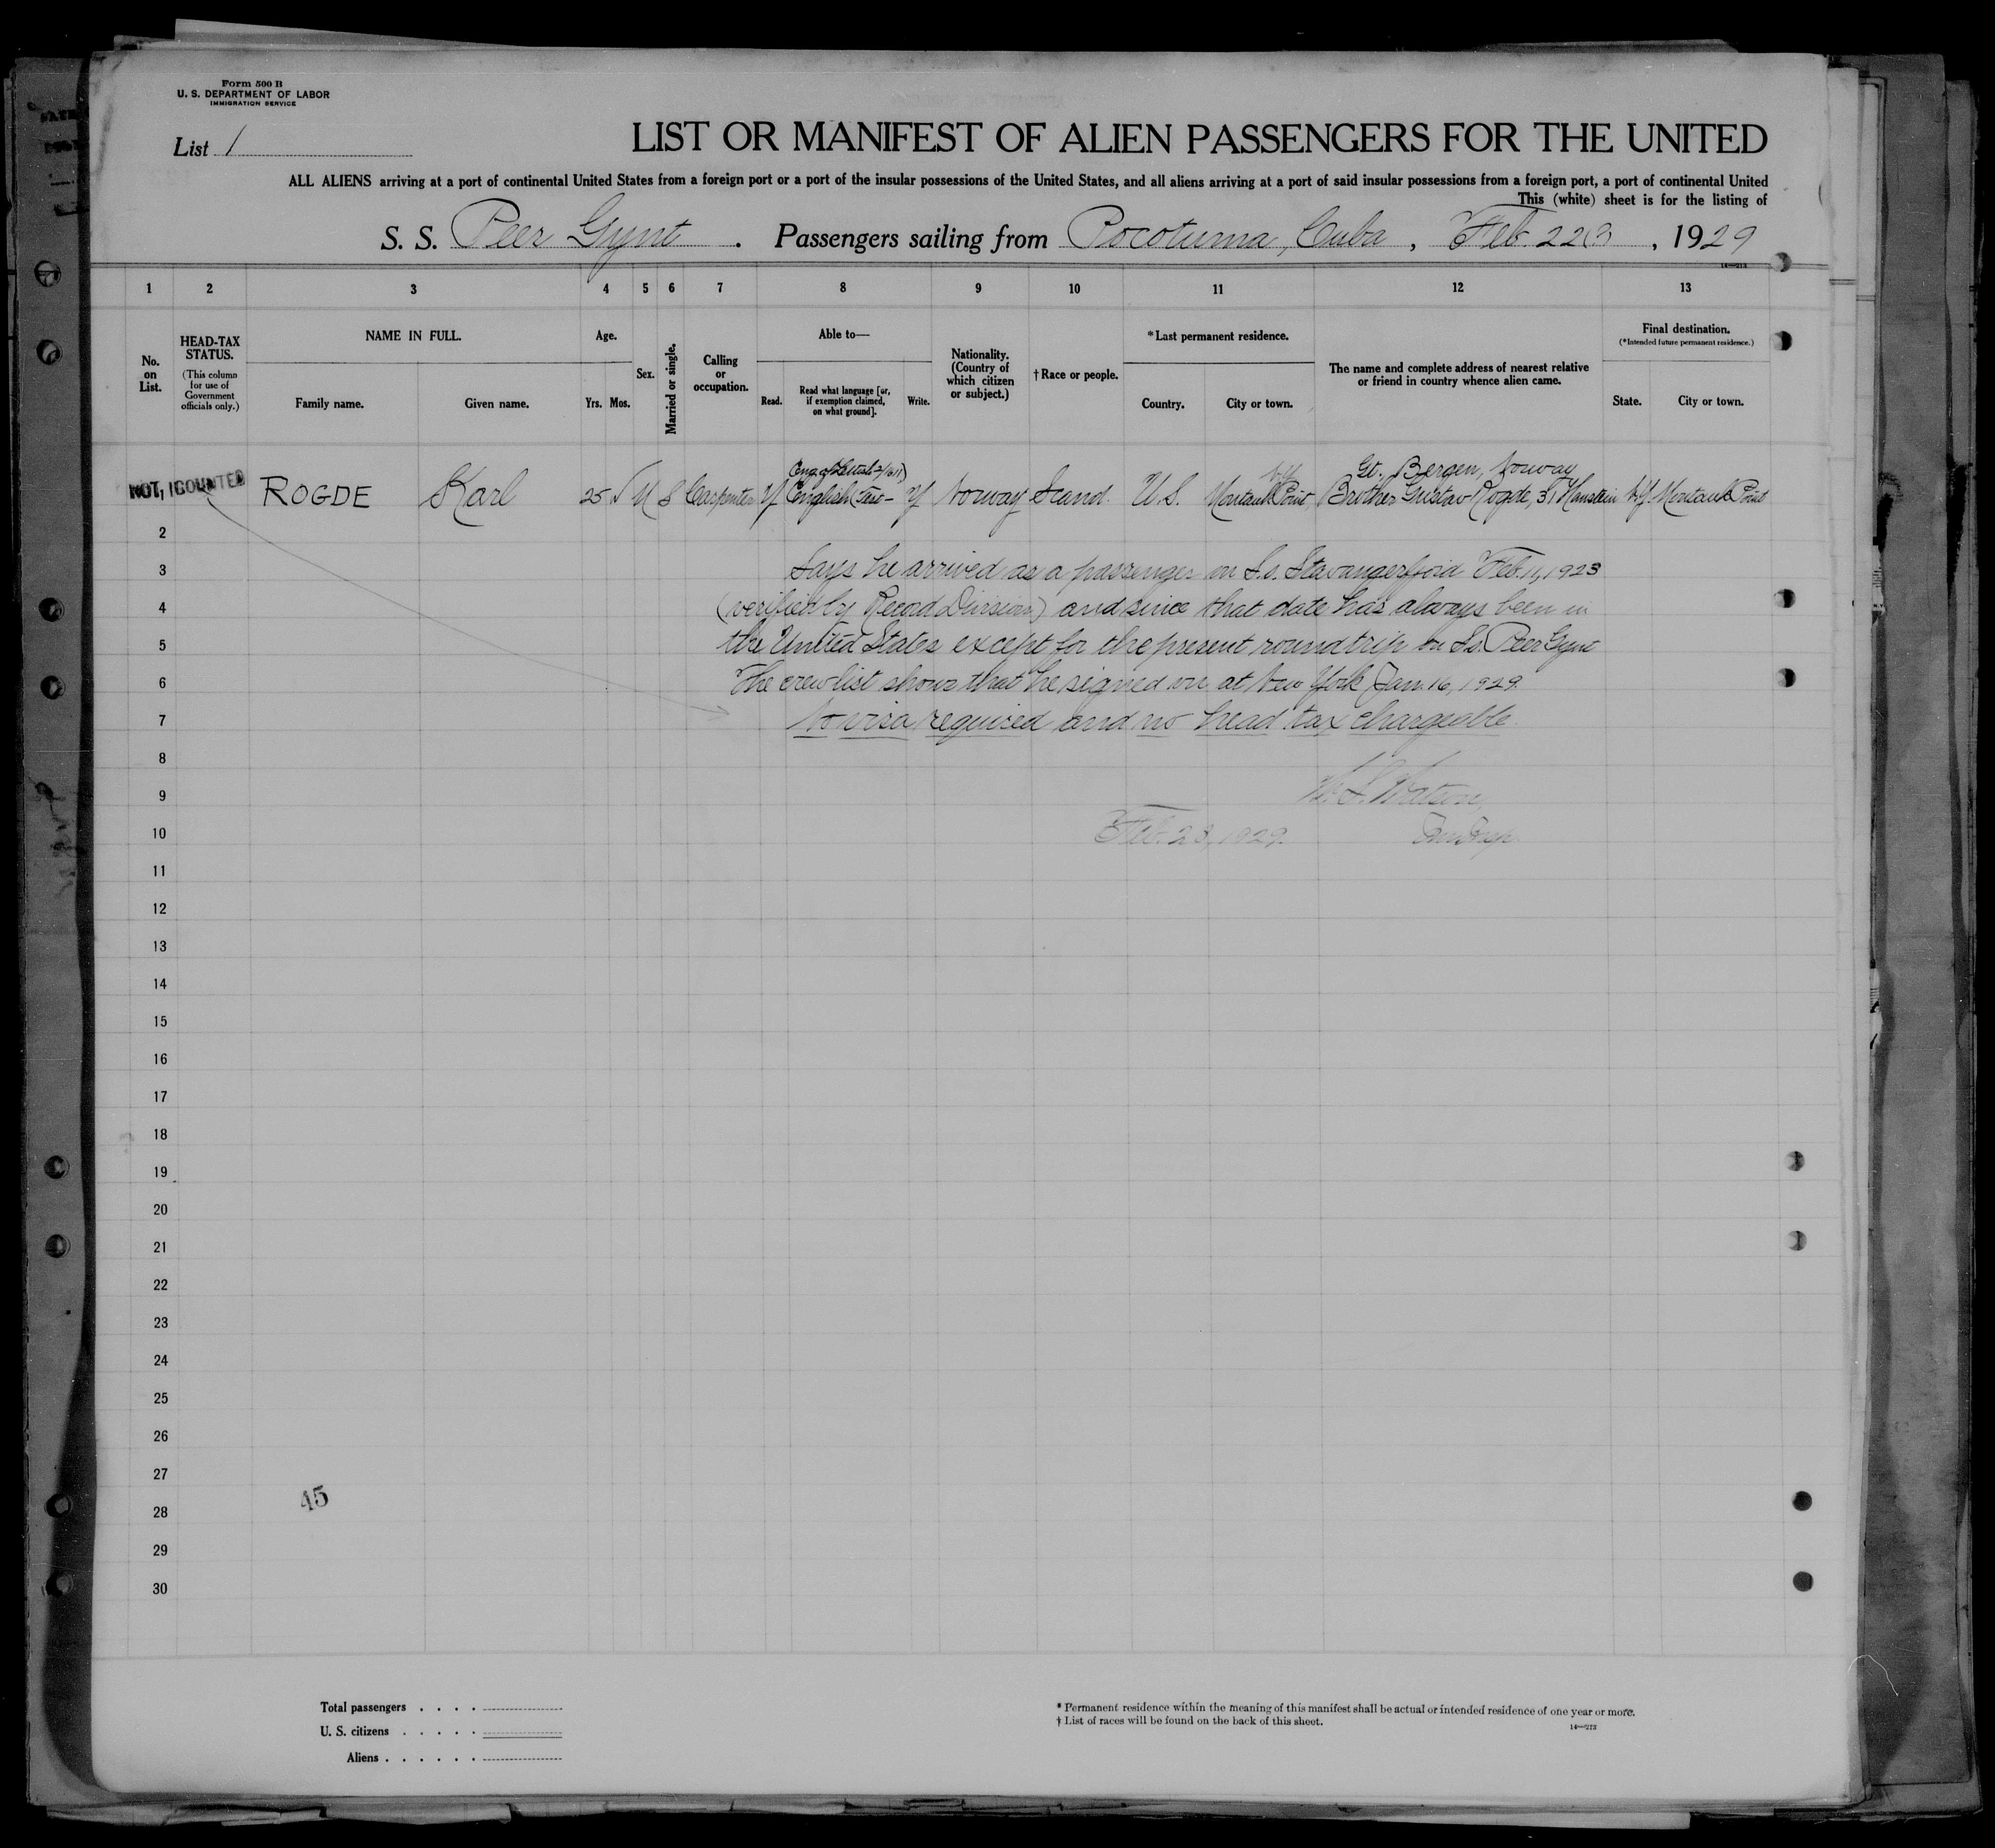 Form 500 B
U. S. DEPARTMENT OF LABOR
IMMIGRATION SERVICE
List 1
LIST OR MANIFEST OF ALIEN PASSENGERS FOR THE UNITED
ALL ALIENS arriving at a port of continental United States from a foreign port or a port of the insular possessions of the United States, and all aliens arriving at a port of said insular possessions from a foreign port, a port of continental United
This (white) sheet is for the listing of
S. S. Peer Gynt . Passengers sailing from Cuba , Feb. , 1929
14—213
1 2 3 4 5 6 7 8 9 10 11 12 13
No. on List.
HEAD-TAX STATUS.
(This column for use of Government officials only.)
NAME IN FULL.
Family name. Given name.
Age.
Yrs. Mos.
Sex.
Married or single.
Calling or occupation.
Able to—
Read.
Read what language [or, if exemption claimed, on what ground].
Write.
Nationality. (Country of which citizen or subject.)
† Race or people.
*Last permanent residence.
Country. City or town.
The name and complete address of nearest relative or friend in country whence alien came.
Final destination.
(*Intended future permanent residence.)
State. City or town.
St., Bergen, Norway
NOT COUNTED 1 ROGDE Karl 25 M S Carpenter Y English Y Norway Scand. U.S. Montauk Point, Brother Gustav Rogde, 31 N.Y. Montauk Point
2
3 Says he arrived as a passenger on S.s. Stavangerfjord Feb. 11, 1923
4 (verified by Record Division) and since that date has always been in
5 the United States except for the present round trip on S.s. Peer Gynt
6 The crew list shows that he signed on at New York Jan. 16, 1929.
7 No visa required and no head tax chargeable.
8
9 Watson,
10 Feb. 23, 1929.
11
12
13
14
15
16
17
18
19
20
21
22
23
24
25
26
27
45
28
29
30
Total passengers . . . .
U. S. citizens . . . . .
Aliens . . . . . .
* Permanent residence within the meaning of this manifest shall be actual or intended residence of one year or more.
† List of races will be found on the back of this sheet.
14—213